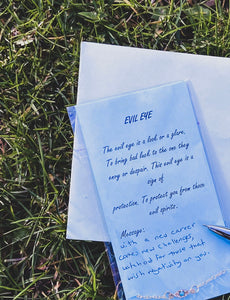 EVIL EYE
The evil eye is a look or a glare,
To bring bad luck to the one they
envy or despise. This evil eye is a
sign of
protection. To protect you from those
evil spirits.
Message:
with a new career
comes new challenges,
watch out for those that
wish negativity on you.